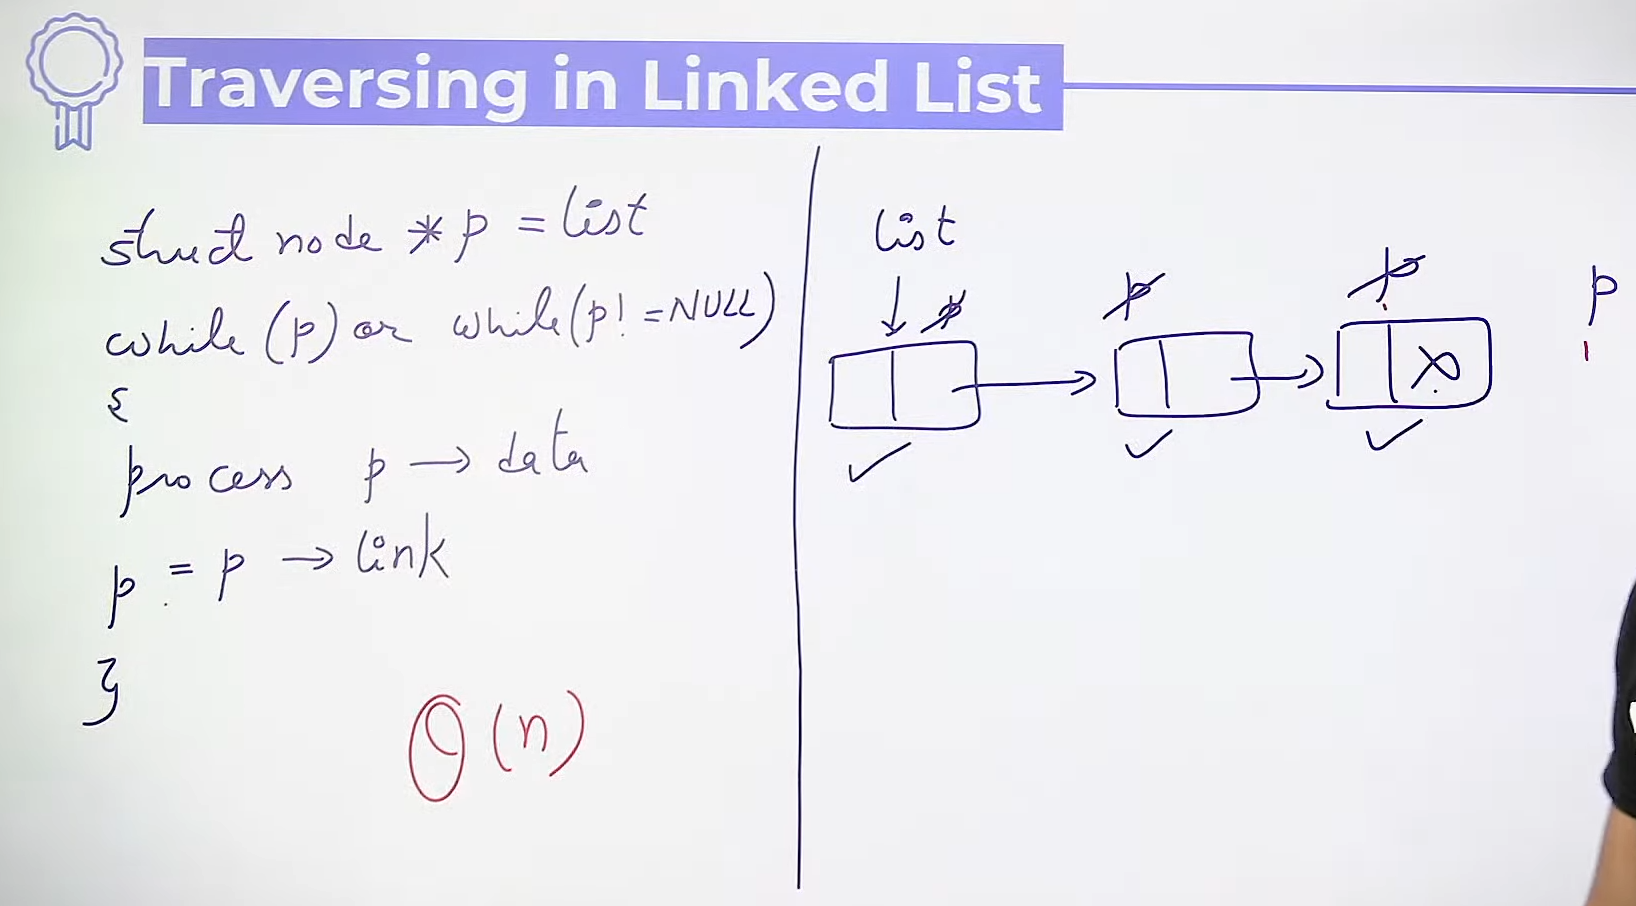 Traversing in Linked List
struct node *p = list
while (p) or while (p! = NULL)
{
process p → data
p = p → link
}
O(n)
list
p
p
p
p